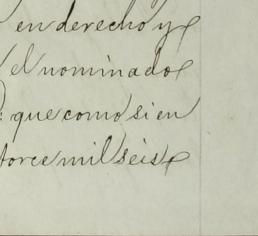 en derecho y
el nominado
que como si en
torce mil seis